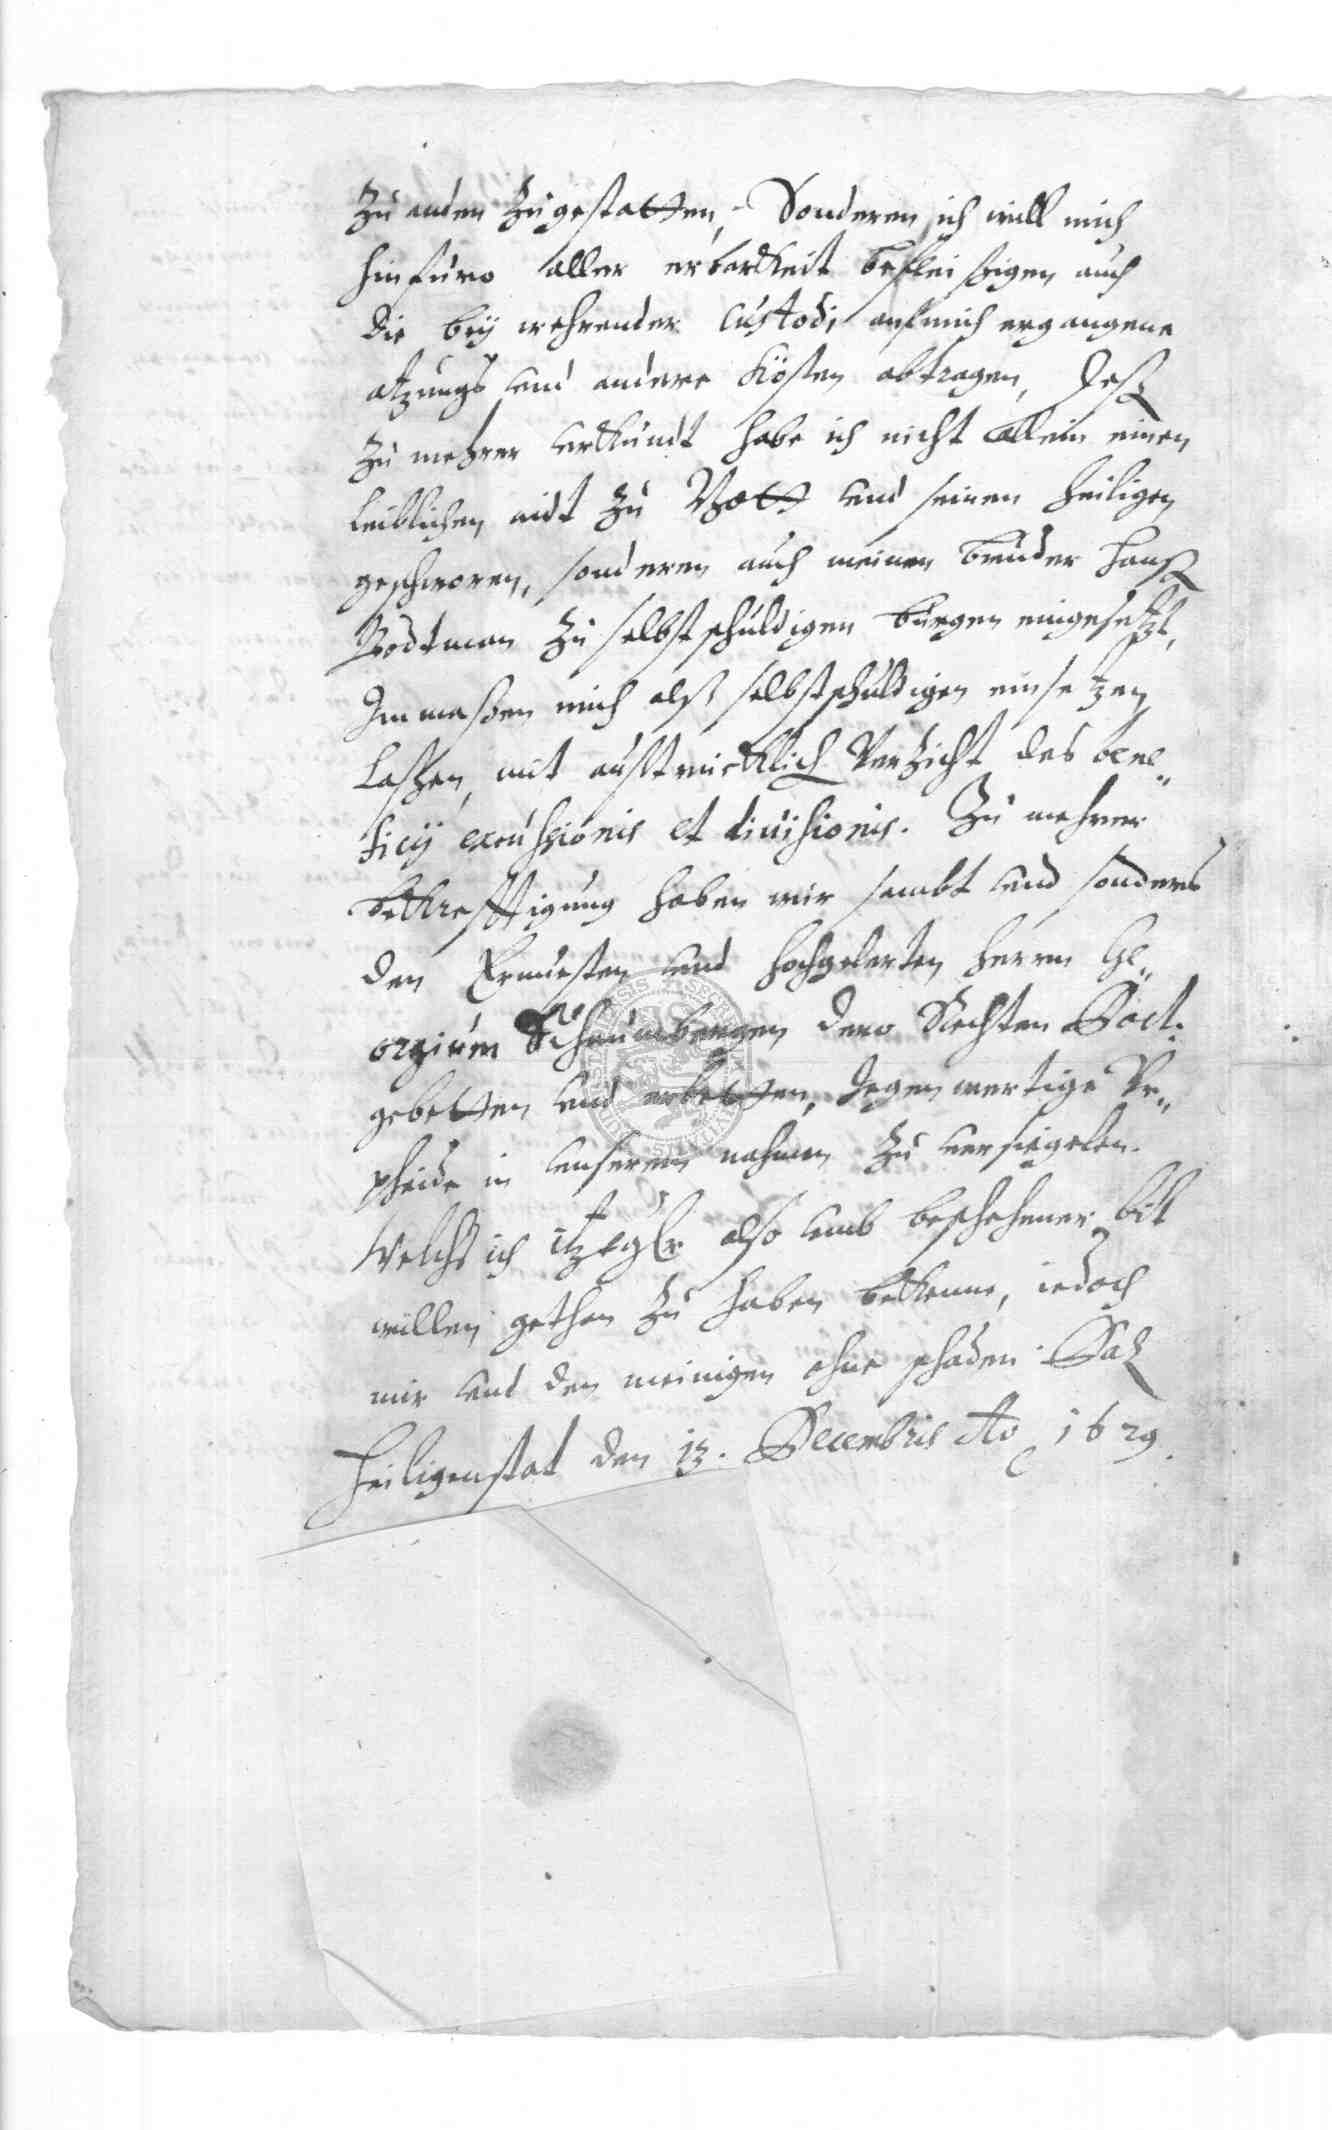 Zu anden zugestatten, Sonderen ich will mich
hinfüro aller erbarkeit befleißigen auch
die bey wehrender Custodi auf mich ergangene
atzungs und andere Kösten abtragen, deß
zu mehrer urkundt habe ich nicht allein einen
leiblichen aidt zu Gott und seinen heiligen
geschworen, sonderen auch meinen bruder Hanß
Bodtman zu selbstschuldigen burgen eingesetzt,
Inmaßen mich alß selbstschuldigen einsetzen
laßen, mit außtrücklich verzicht des bene„
ficij excussionis et divisionis. Zu mehrer
bekrefftigung haben wir sambt und sonders
den Ernuesten und hochgelerten herrn Ge„
orgium Schaumbergen dero Rechten Doct.
gebetten und erbetten, gegenwertige Vr„
pheide in unserem nahmen zu versiegelen.
Welchs ich itztglr also umb beschehener bit
willen gethan zu haben bekenne, iedoch
mir und den meinigen ohne schaden. Dat
Heiligenstat den 13. Decembris Ao 1629